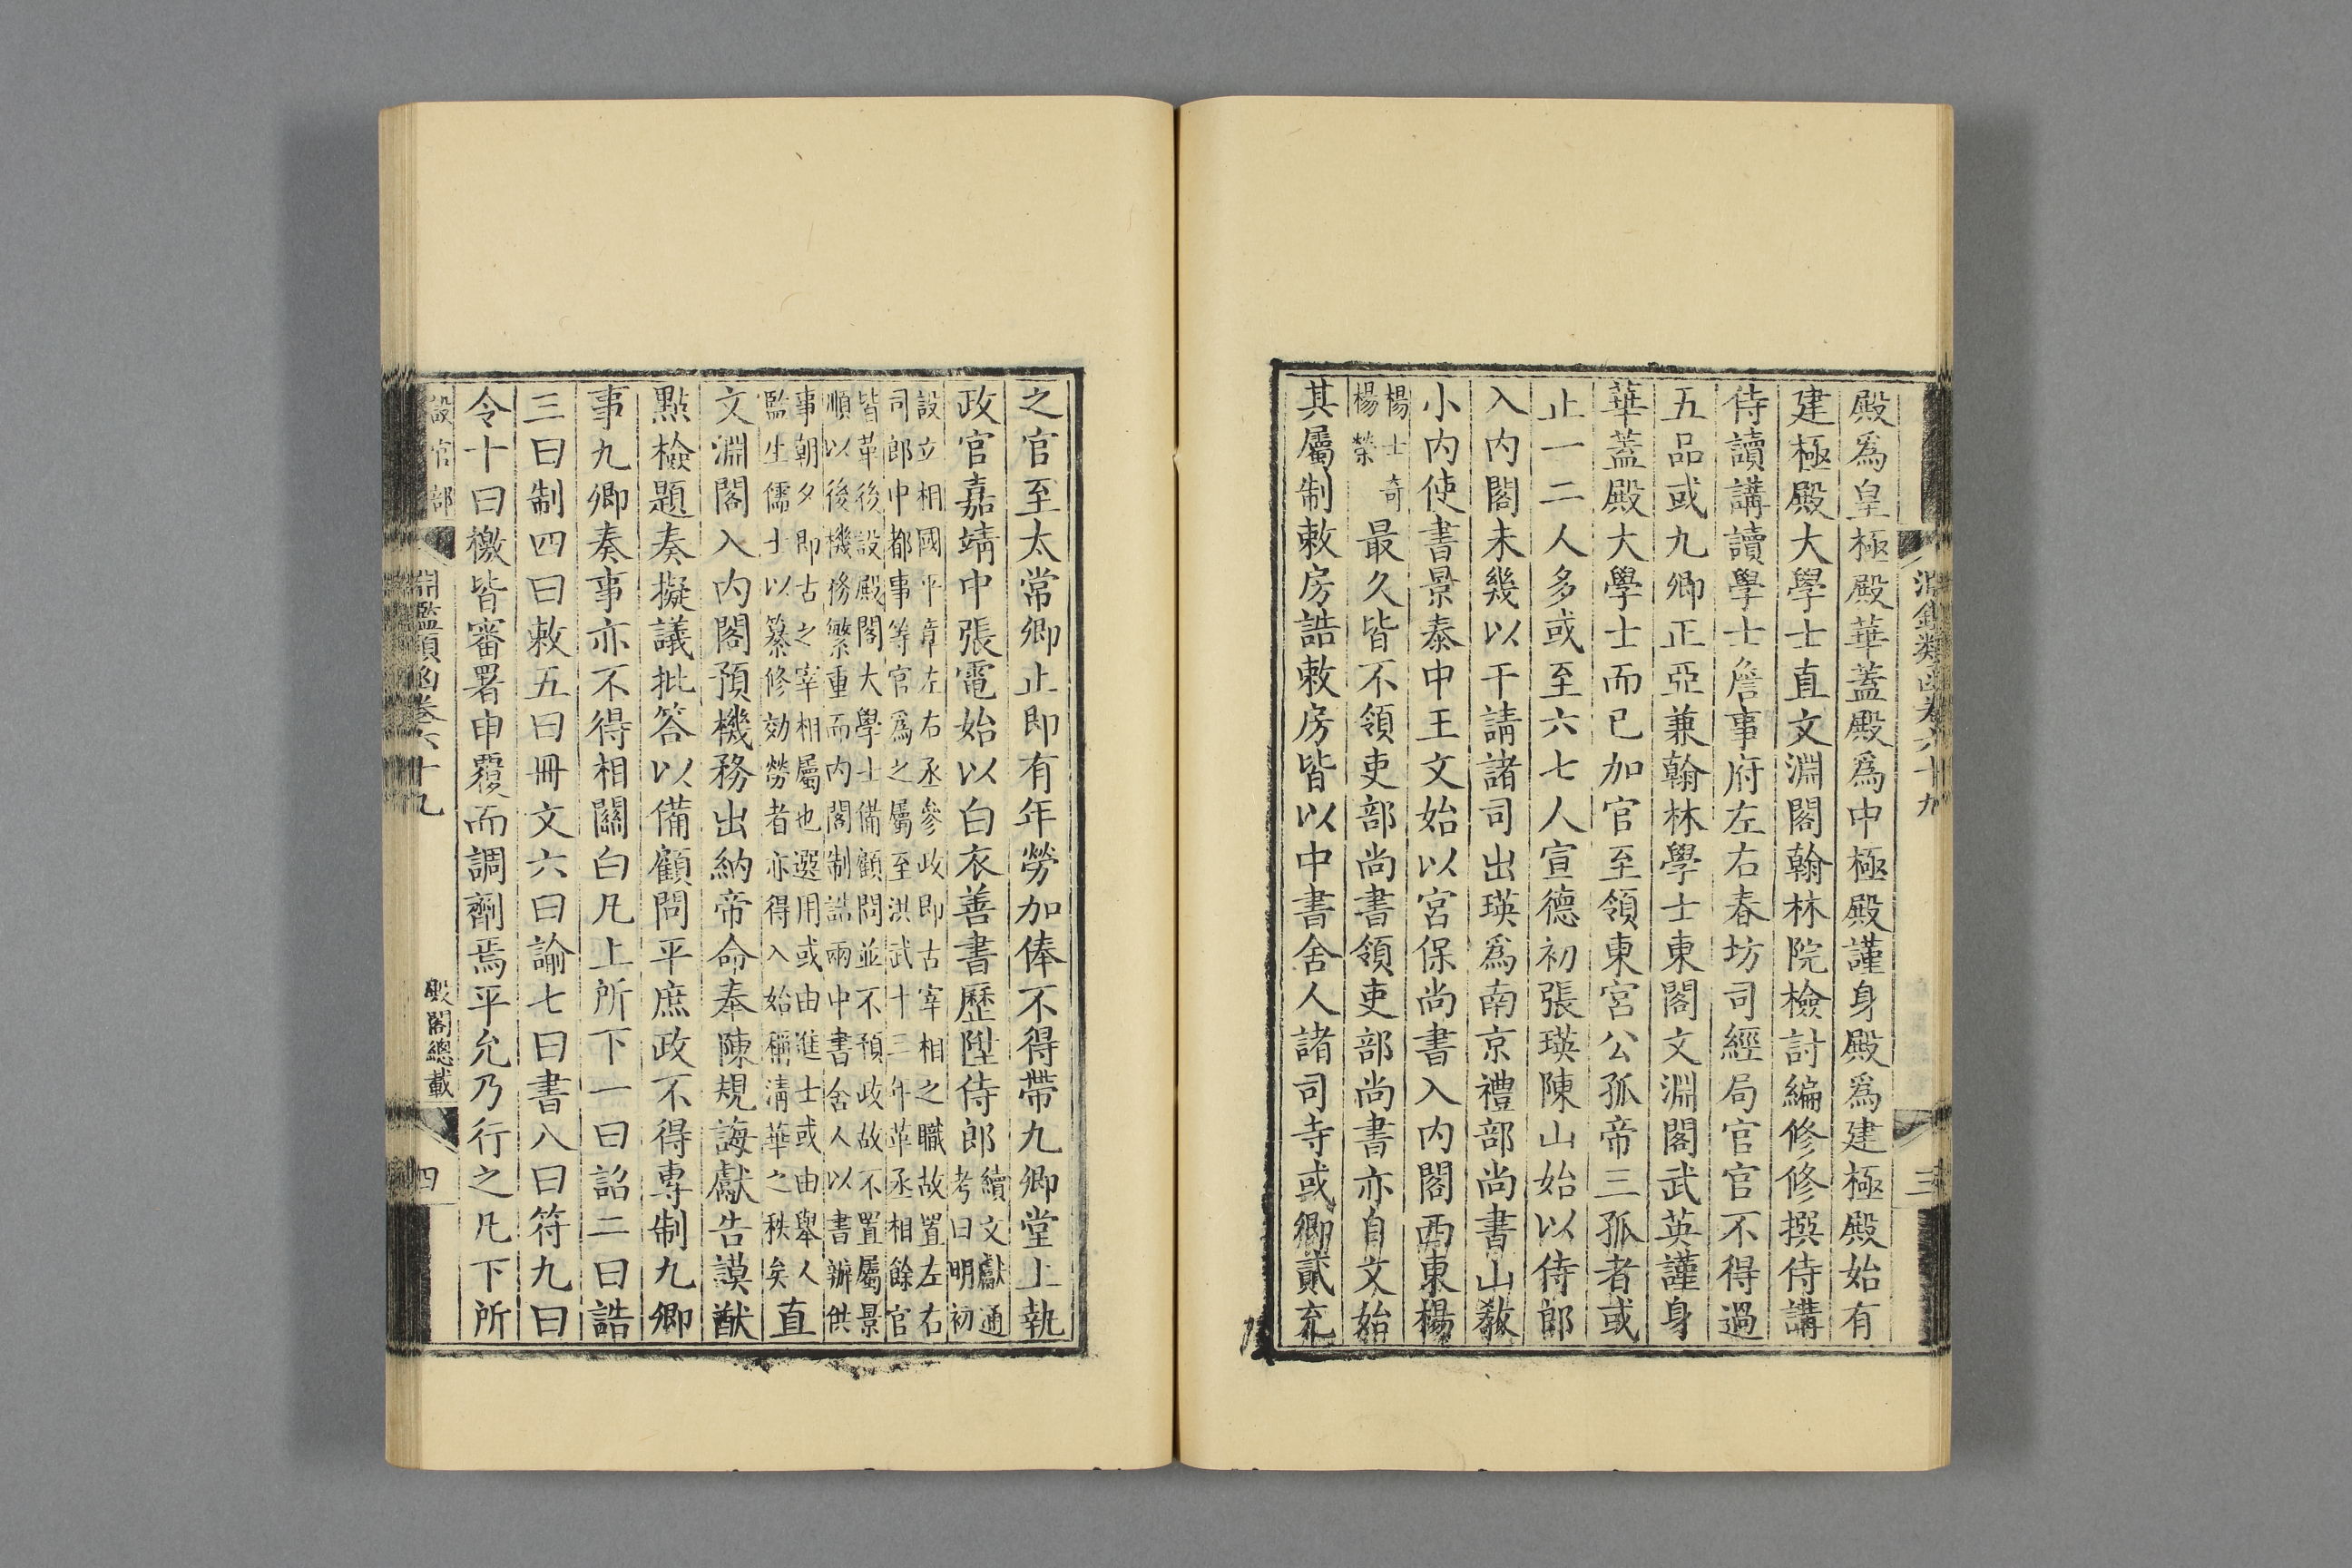 淵鑑類函卷六十九
三
殿爲皇極殿華蓋殿爲中極殿謹身殿爲建極殿始有
建極殿大學士直文淵閣翰林院檢討編修修撰侍講
侍讀講讀學士詹事府左右春坊司經局官官不得過
五品或九卿正亞兼翰林學士東閣文淵閣武英謹身
華蓋殿大學士而已加官至領東宮公孤帝三孤者或
止一二人多或至六七人宣德初張瑛陳山始以侍郎
入内閣未幾以干請諸司出瑛爲南京禮部尚書山敎
小内使書景泰中王文始以宮保尚書入内閣西東楊
楊士奇
楊榮
最久皆不領吏部尚書領吏部尚書亦自文始
其屬制敕房誥敕房皆以中書舍人諸司寺或卿貳充
之官至太常卿止即有年勞加俸不得帶九卿堂上執
政官嘉靖中張電始以白衣善書歷陞侍郎
續文獻通
考曰明初
設立相國平章左右丞參政即古宰相之職故置左右
司郎中都事等官爲之屬至洪武十三年革丞相餘官
皆革後設殿閣大學士備顧問並不預政故不置屬景
順以後機務繁重而内閣制誥兩中書舍人以書辦供
事朝夕即古之宰相屬也選用或由進士或由舉人
監生儒士以纂修効勞者亦得入始稱清華之秩矣
直
文淵閣入内閣預機務出納帝命奉陳規誨獻告謨猷
點檢題奏擬議批答以備顧問平庶政不得專制九卿
事九卿奏事亦不得相關白凡上所下一曰詔二曰誥
三曰制四曰敕五曰冊文六曰諭七曰書八曰符九曰
令十曰檄皆審署申覆而調劑焉平允乃行之凡下所
設官部
淵鑑類函卷六十九
殿閣總載
四